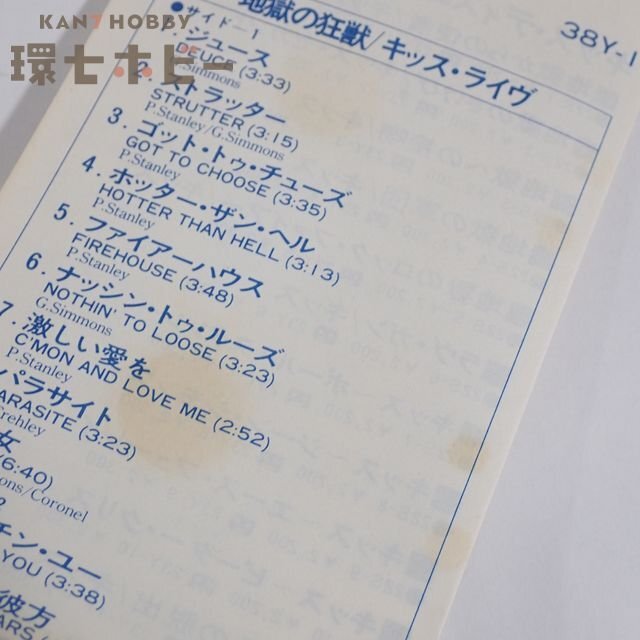 KAN7 HOBBY
環七ホビー
地獄の狂獣/キッス・ライヴ
38Y-1
●サイド-1
ジュース
DEUCE (3:33)
Simmons
2. ストラッター
STRUTTER (3:15)
P.Stanley/G.Simmons
3. ゴット・トゥ・チューズ
GOT TO CHOOSE (3:35)
P.Stanley
4. ホッター・ザン・ヘル
HOTTER THAN HELL (3:13)
P.Stanley
5. ファイアーハウス
FIREHOUSE (3:48)
P.Stanley
6. ナッシン・トゥ・ルーズ
NOTHIN' TO LOOSE (3:23)
G.Simmons
7. 激しい愛を
C'MON AND LOVE ME (2:52)
P.Stanley
パラサイト
ARASITE (3:23)
rehley
女
(6:40)
ons/Coronel
チン・ユー
YOU (3:38)
彼方
ARS (